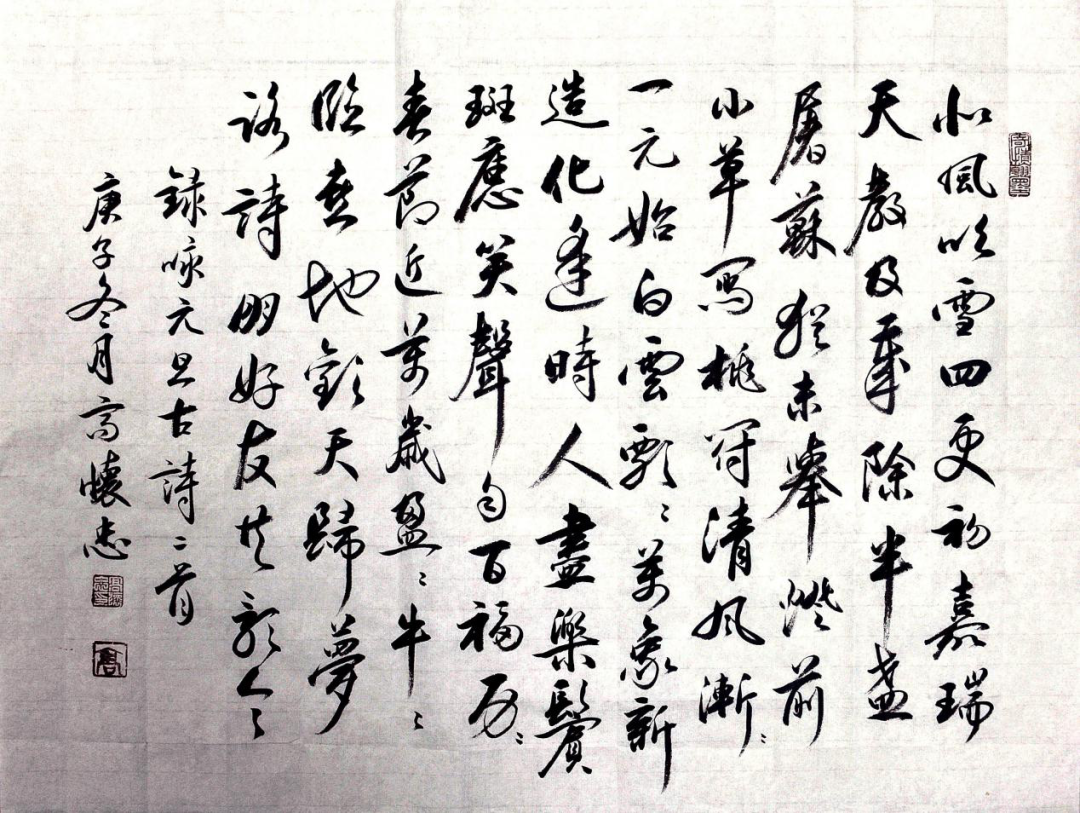 北風吹雪四更初嘉瑞
天教及歲除半盞
屠蘇猶未舉燈前
小草寫桃符清風漸〻
一元始白雲飄〻萬象新
造化逢時人盡樂鬢
斑應笑聲百福
春節近萬歲盈〻牛〻
臨喜地歡天歸夢
詩朋好友共
録咏元旦古詩二首
庚子冬月高懷忠